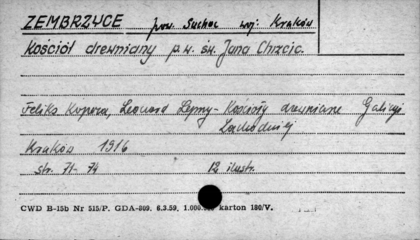 ZEMBRZYCE pow. Sucha woj. Kraków
Kościół drewniany p.w. św. Jana Chrzcic.
Feliks Kopera, Leonard Lepszy - Kościoły drewniane Galicji
Zachodniej
Kraków 1916
str. 71 - 74 12 ilustr.
CWD B-15b Nr 515/P. GDA-809. 6.3.59. 1.000. karton 180/V.